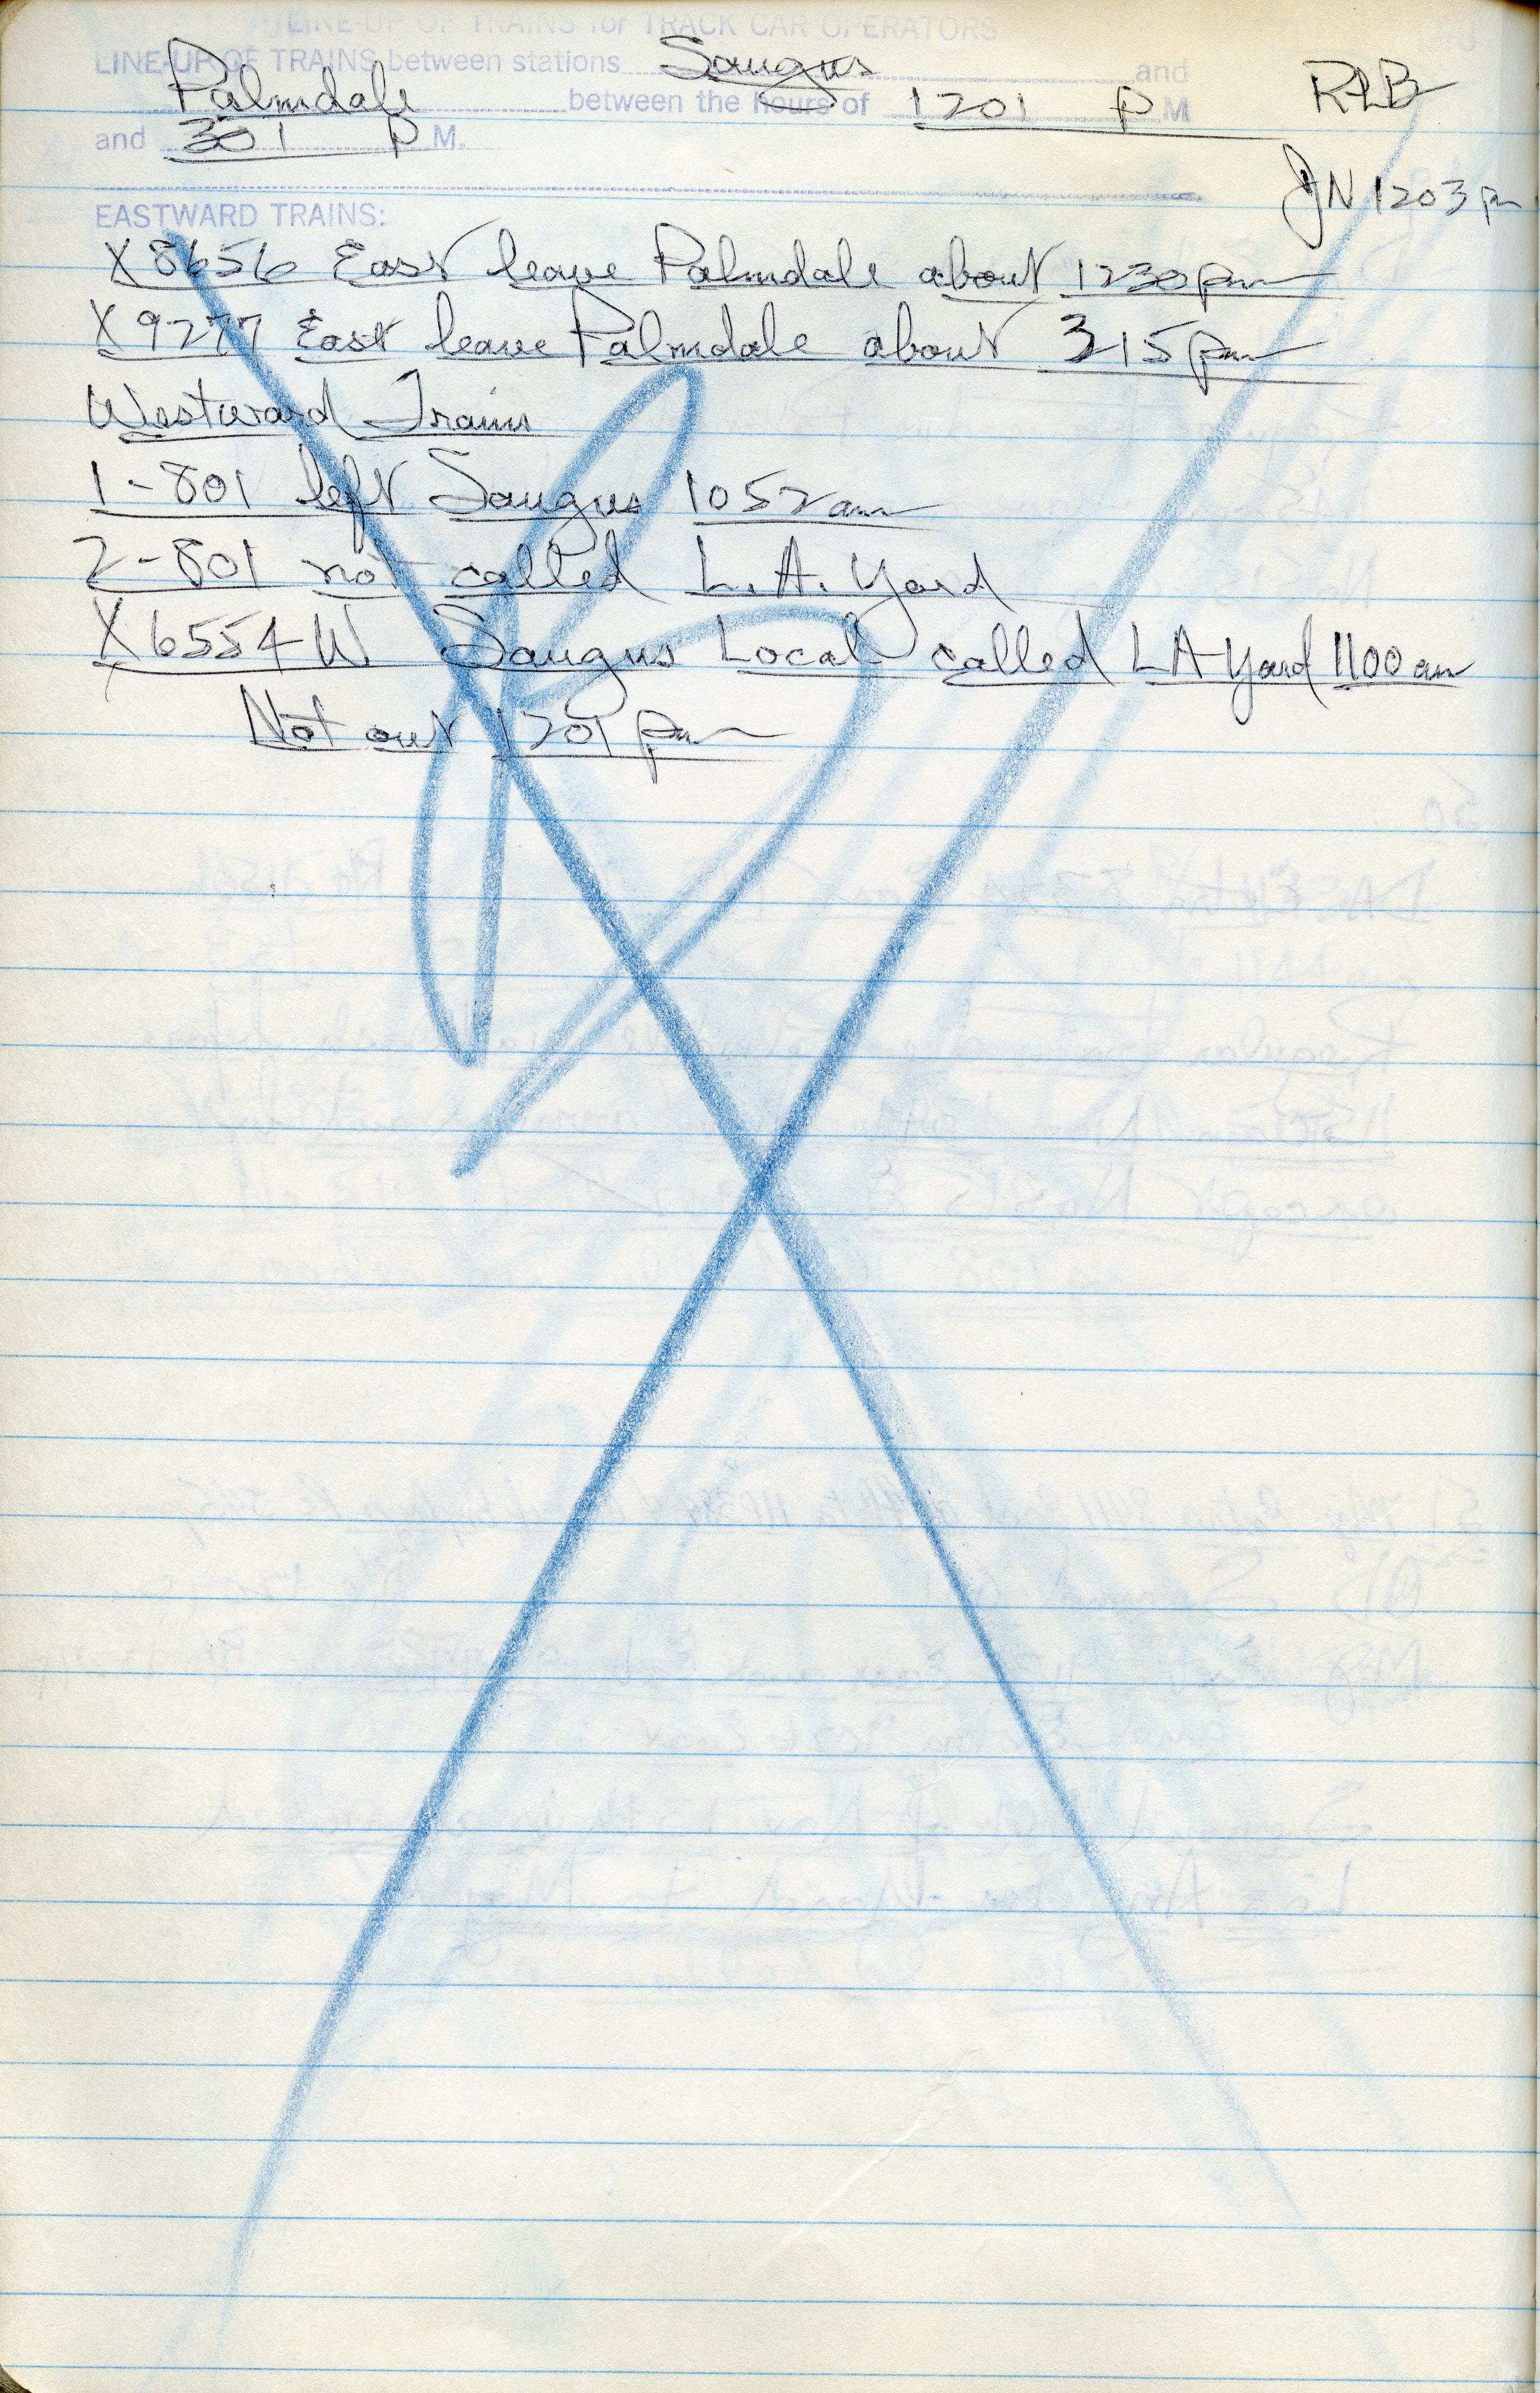 LINE-UP OF TRAINS for TRACK CAR OPERATORS
LINE-UP OF TRAINS between stations Saugus and
Palmdale between the hours of 1201 P M RLB
and 301 P M.
JN 1203 pm
EASTWARD TRAINS:
X 8656 East leave Palmdale about 1230 pm
X 9277 East leave Palmdale about 315 pm
Westward Trains
1-801 left Saugus 1052 am
2-801 not called L.A. Yard
X 6554 W Saugus Local called LA Yard 1100 am
Not out 1201 pm